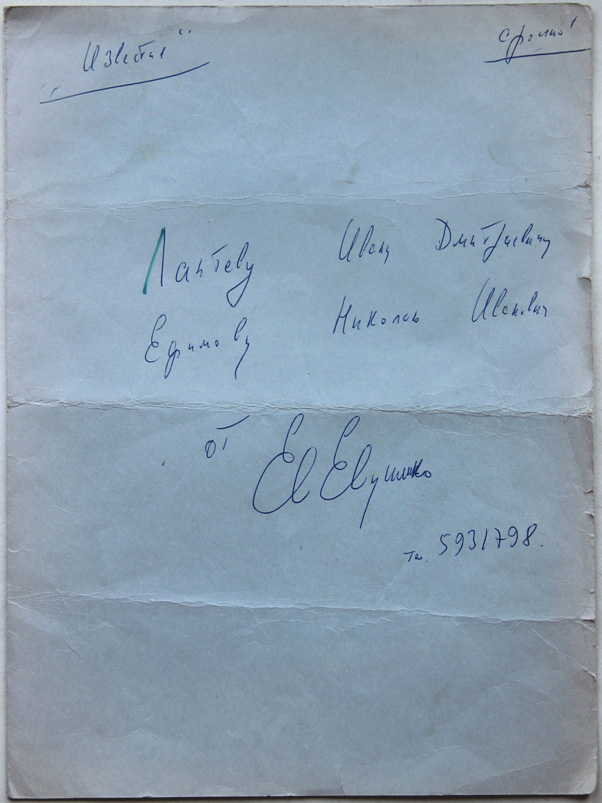 „Известия“ срочно!
Лаптеву Ивану Дмитриевичу
Ефимову Николаю Ивановичу
от
Ев Евтушенко
Тел. 5931798.